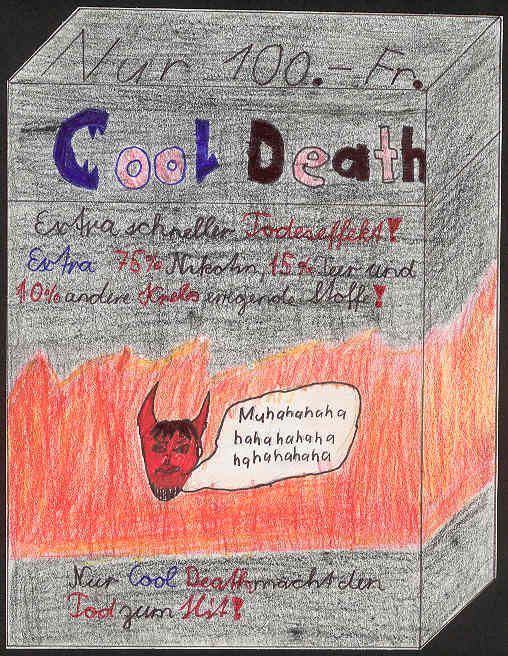 Nur 100.- Fr.
Cool Death
Extra schneller Todeseffekt!
Extra 75% Nikotin, 15% Teer und
10% andere Krebs erregende Stoffe!
Muhahahaha
hahahahaha
hahahahaha
Nur Cool Death macht den
Tod zum Hit!